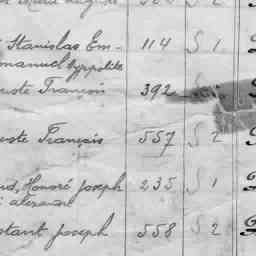 Stanislas Em- 114 S 1
manuel Hyppolite
uste François 392
uste François 557 S 2
ud, Honoré Joseph 235 S 1
alexandre
stant Joseph 558 S 2